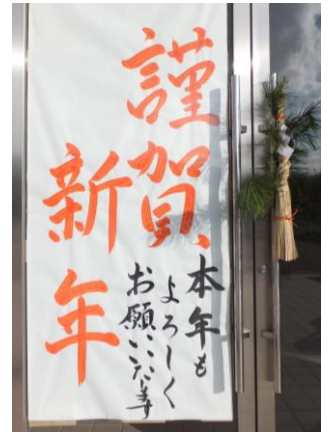 謹賀
新年
本年も
よろしく
お願いいたします